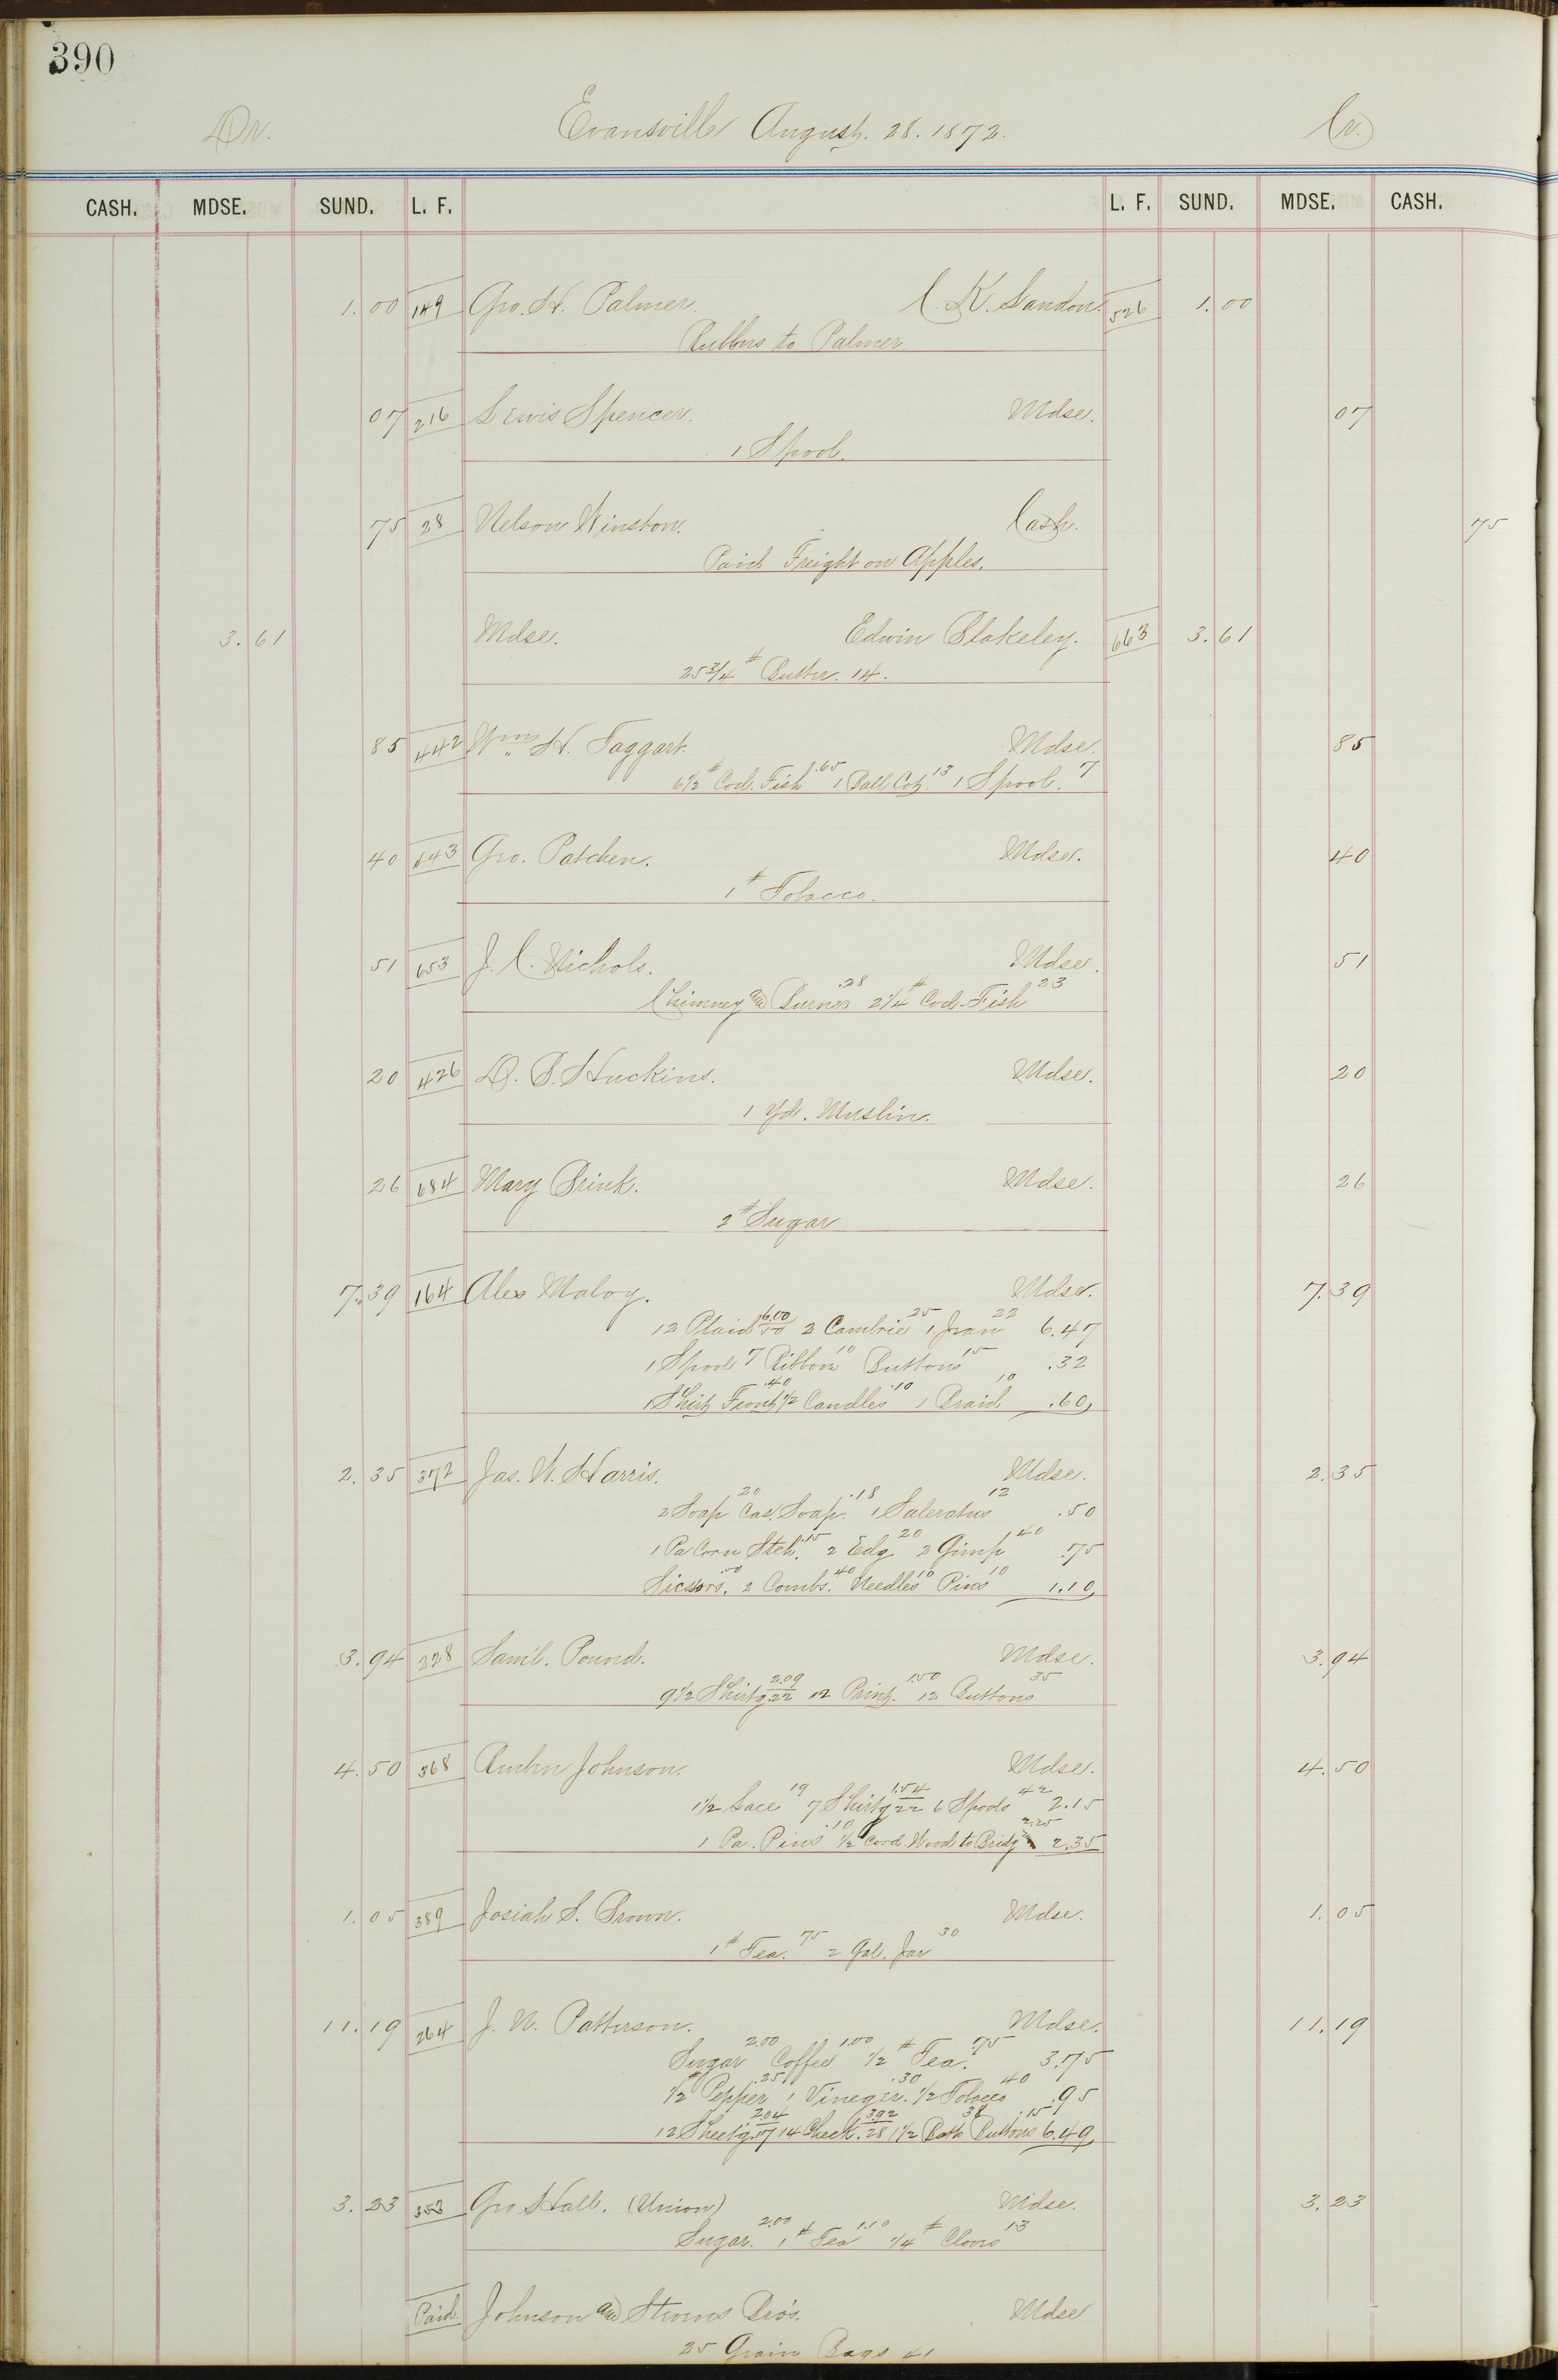 390
Dr. Evansville August. 28. 1872. Cr.
CASH. MDSE. SUND. L. F. L. F. SUND. MDSE. CASH.
1.00 149 Geo. H. Palmer. C. K. Landon. 526 1.00
Rubbers to Palmer
07 216 Lewis Spencer. Mdse. 07
1 Spool.
75 28 Nelson Winston. Cash. 75
Paid Freight on Apples.
3.61 Mdse. Edwin Blakeley. 663 3.61
25 3/4 # Butter. 14.
85 442 Wm H. Taggart. Mdse. 85
6 1/2 # Cod. Fish .65 1 Ball Cot. 13 1 Spool. 7
40 643 Geo. Patchen. Mdse. 40
1 # Tobacco.
51 653 J. C. Nichols. Mdse. 51
Chimney and Burner .28 2 1/4 # Cod-Fish 23
20 426 D. B. Huckins. Mdse. 20
1 Yd. Muslin.
26 684 Mary Brink. Mdse. 26
2 # Sugar
7.39 164 Alex Maloy. Mdse. 7.39
12 Plaid 6.00 50 2 Cambric 25 1 Jean 22 6.47
1 Spool 7 Ribbon 10 Buttons 15 .32
1 Shirt Front .40 1/2 Candles .10 1 Braid 10 .60
2.35 372 Jas. W. Harris. Mdse. 2.35
2 Soap 20 Cas. Soap. .18 1 Saleratus 12 .50
1 Pa Corn Stch. .15 2 Edg 20 2 Gimp 40 .75
Sicsors. .50 2 Combs. 40 Needles 10 Pins 10 1.10
3.94 328 Saml. Pound. Mdse. 3.94
9 1/2 Shirtg 2.09 22 12 Print. 1.50 12 Buttons 35
4.50 368 Reuben Johnson. Mdse. 4.50
1 1/2 Lace 19 7 Shirtg 1.54 22 6 Spools 42 2.15
1 Pa. Pins .10 1/2 Cord Wood to Bridg 2.25 2.35
1.05 389 Josiah S. Brown. Mdse. 1.05
1 # Tea. 75 2 Gal. Jar 30
11.19 264 J. W. Patterson. Mdse. 11.19
Sugar 2.00 Coffee 1.00 1/2 # Tea. .75 3.75
1/2 # Pepper .25 1 Vineger. .30 1/2 Tobacco 40 .95
12 Sheet'g. 2.04 17 14 Check. 3.92 28 1 1/2 Batt 38 Buttons .15 6.49
3.23 353 Geo Hall. (Union) Mdse. 3.23
Sugar. 2.00 1 # Tea 1.10 1/4 # Cloves 13
Paid. Johnson and Stevens Bro's. Mdse
25 Grain Bags 41